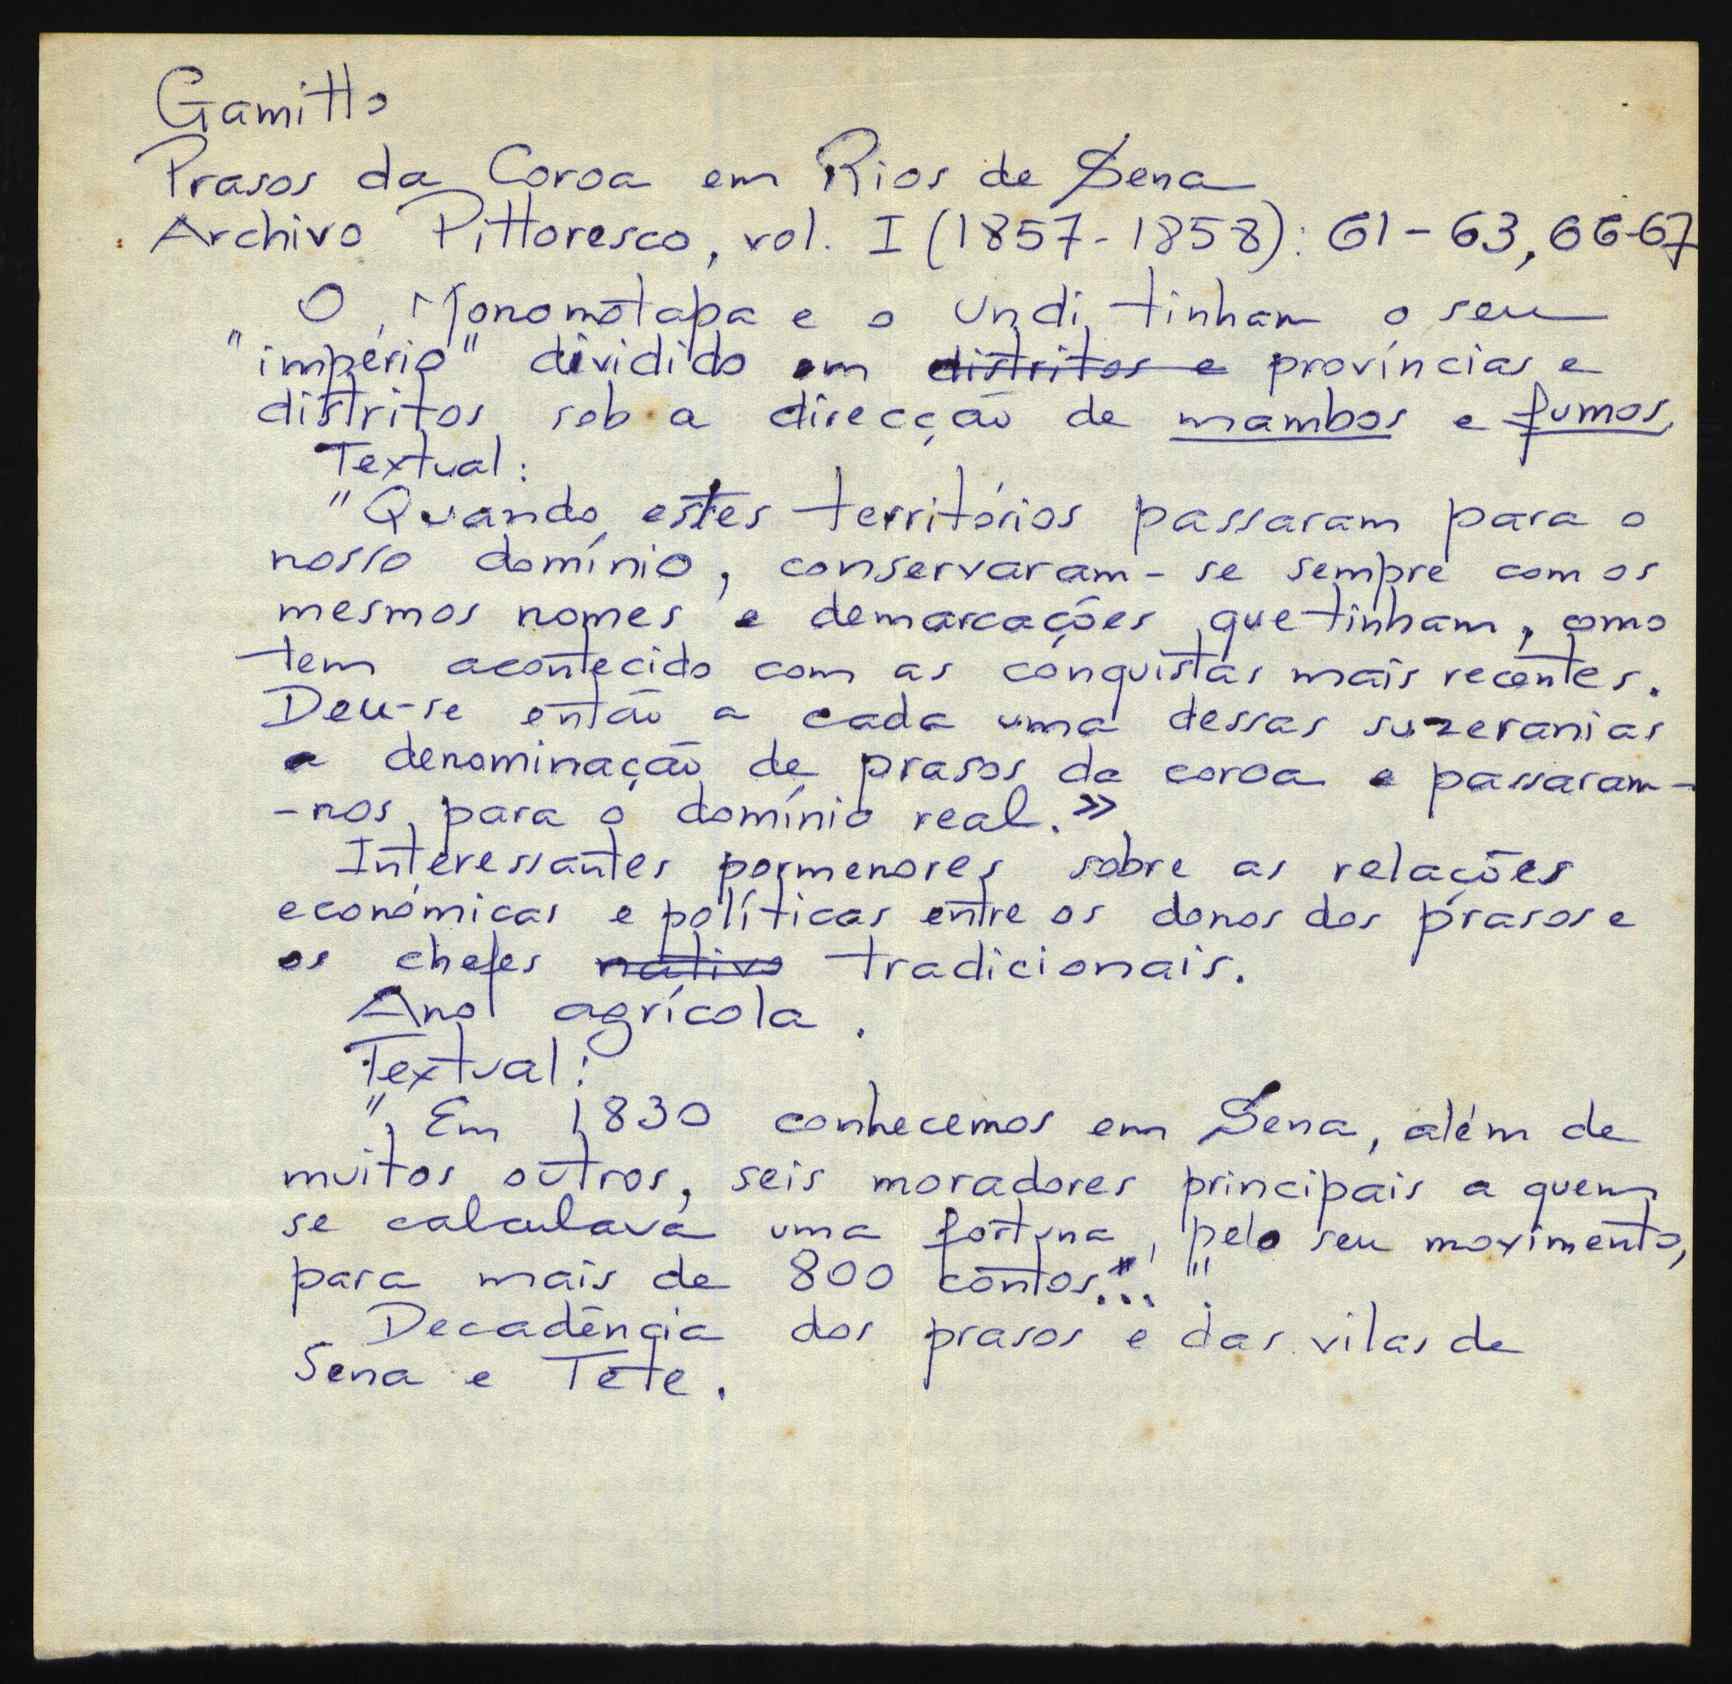 Gamitto
Prasos da Coroa em Rios de Sena
Archivo Pittoresco, vol. I (1857-1858): 61-63, 66-67
O Monomotapa e o Undi tinham o seu
"império" dividido em distritos e províncias e
distritos sob a direcção de mambos e fumos.
Textual:
"Quando estes territórios passaram para o
nosso domínio, conservaram-se sempre com os
mesmos nomes e demarcações que tinham, como
tem acontecido com as conquistas mais recentes.
Deu-se então a cada uma dessas suzeranias
a denominação de prasos da coroa e passaram-
-nos para o domínio real.»
Interessantes pormenores sobre as relações
económicas e políticas entre os donos dos prasos e
os chefes nativo tradicionais.
Ano agrícola.
Textual:
"Em 1830 conhecemos em Sena, além de
muitos outros, seis moradores principais a quem
se calculava uma fortuna, pelo seu movimento,
para mais de 800 contos..."
Decadência dos prasos e das vilas de
Sena e Tete.